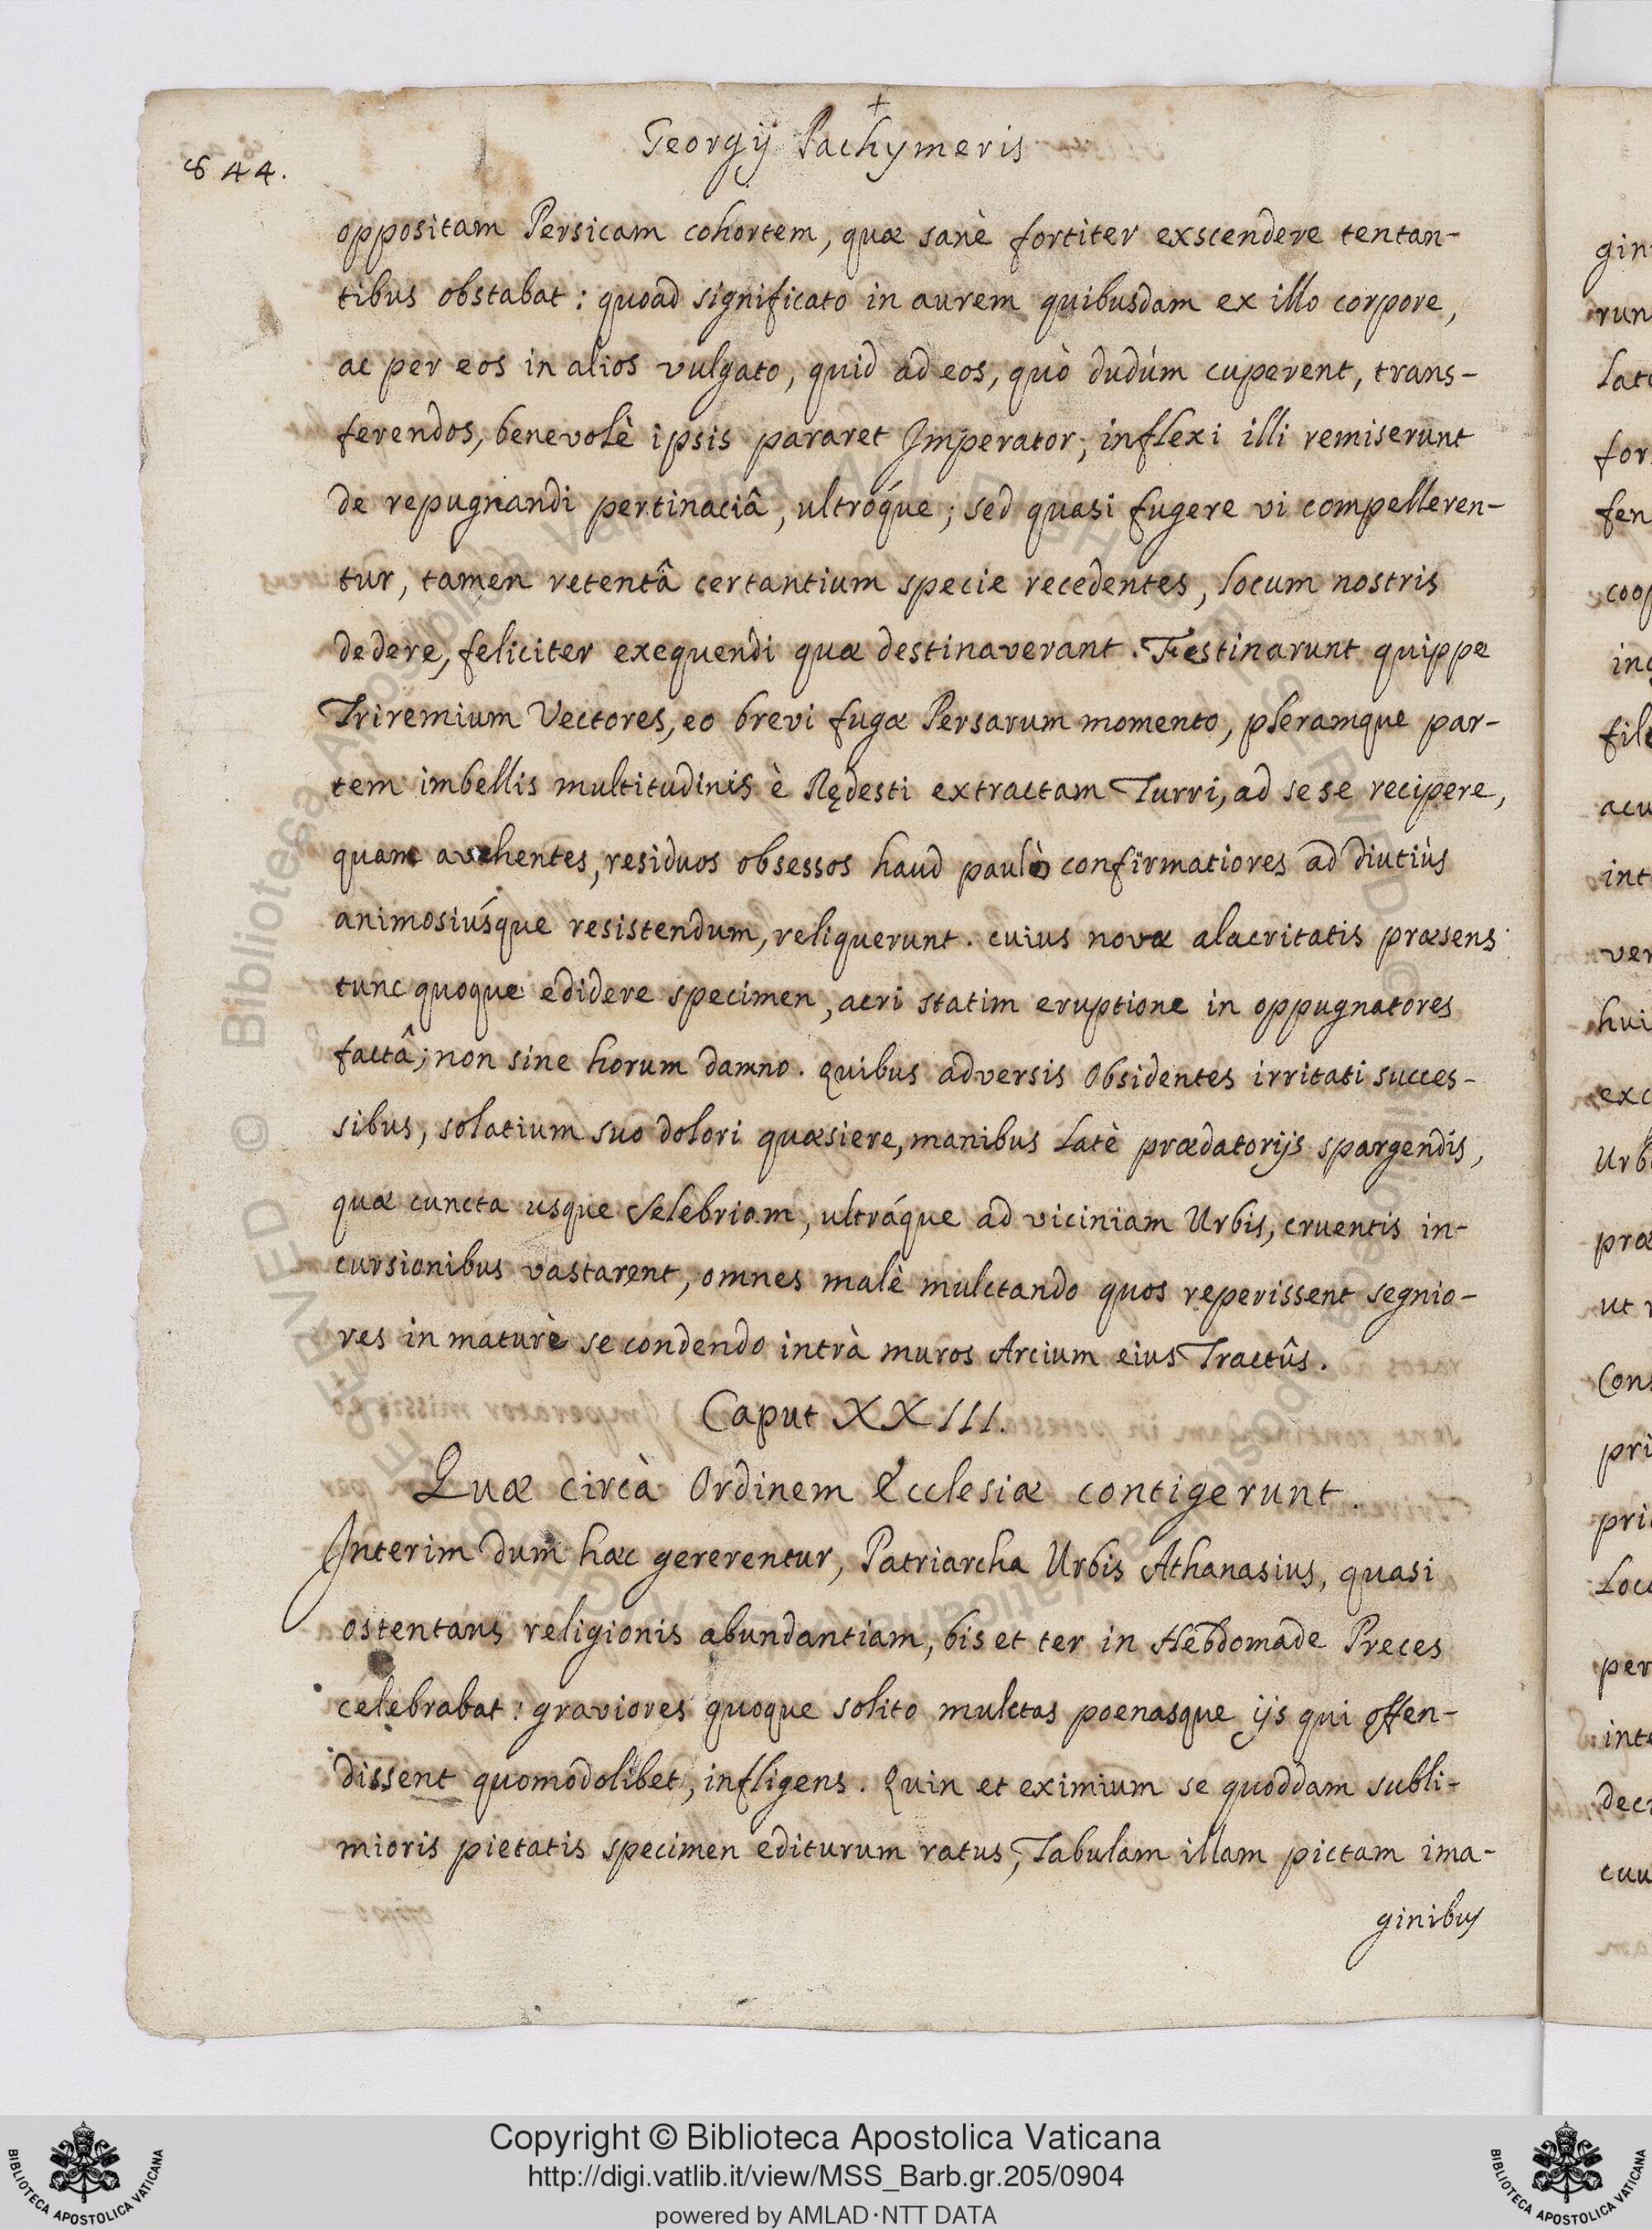 844.
Georgÿ Pachymeris
oppositam Persicam cohortem, quæ sanè fortiter exscendere tentan-
tibus obstabat: quoad significato in aurem quibusdam ex illo corpore,
ac per eos in alios vulgato, quid ad eos, quò dudúm cuperent, trans-
ferendos, benevolè ipsis pararet Imperator; inflexi illi remiserunt
de repugnandi pertinaciâ, ultróque; sed quasi fugere vi compelleren-
tur, tamen retentâ certantium specie recedentes, locum nostris
dedere, feliciter exequendi quæ destinaverant. Festinarunt quippe
Triremium Vectores, eo brevi fugæ Persarum momento, pleramque par-
tem imbellis multitudinis è Rędesti extractam Turri, ad sese recipere,
quam avehentes, residuos obsessos haud paulò confirmatiores ad diutiùs
animosiúsque resistendum, reliquerunt. cuius novæ alacritatis præsens
tunc quoque edidere specimen, acri statim eruptione in oppugnatores
factâ; non sine horum damno. Quibus adversis Obsidentes irritati succes-
sibus, solatium suo dolori quæsiere, manibus latè prædatorijs spargendis,
quæ cuncta usque Selebriam, ultráque ad viciniam Urbis, cruentis in-
cursionibus vastarent, omnes malè mulctando quos reperissent segnio-
res in maturè se condendo intrà muros Arcium eius Tractûs.
Caput XXIII.
Quæ circà Ordinem Ecclesiæ contigerunt.
Interim dum hæc gererentur, Patriarcha Urbis Athanasius, quasi
ostentans religionis abundantiam, bis et ter in Hebdomade Preces
celebrabat: graviores quoque solito mulctas poenasque ijs qui offen-
dissent quomodolibet, infligens. Quin et eximium se quoddam subli-
mioris pietatis specimen editurum ratus, Tabulam illam pictam ima-
ginibus
Copyright © Biblioteca Apostolica Vaticana
http://digi.vatlib.it/view/MSS_Barb.gr.205/0904
powered by AMLAD·NTT DATA
BIBLIOTECA APOSTOLICA VATICANA
BIBLIOTECA APOSTOLICA VATICANA